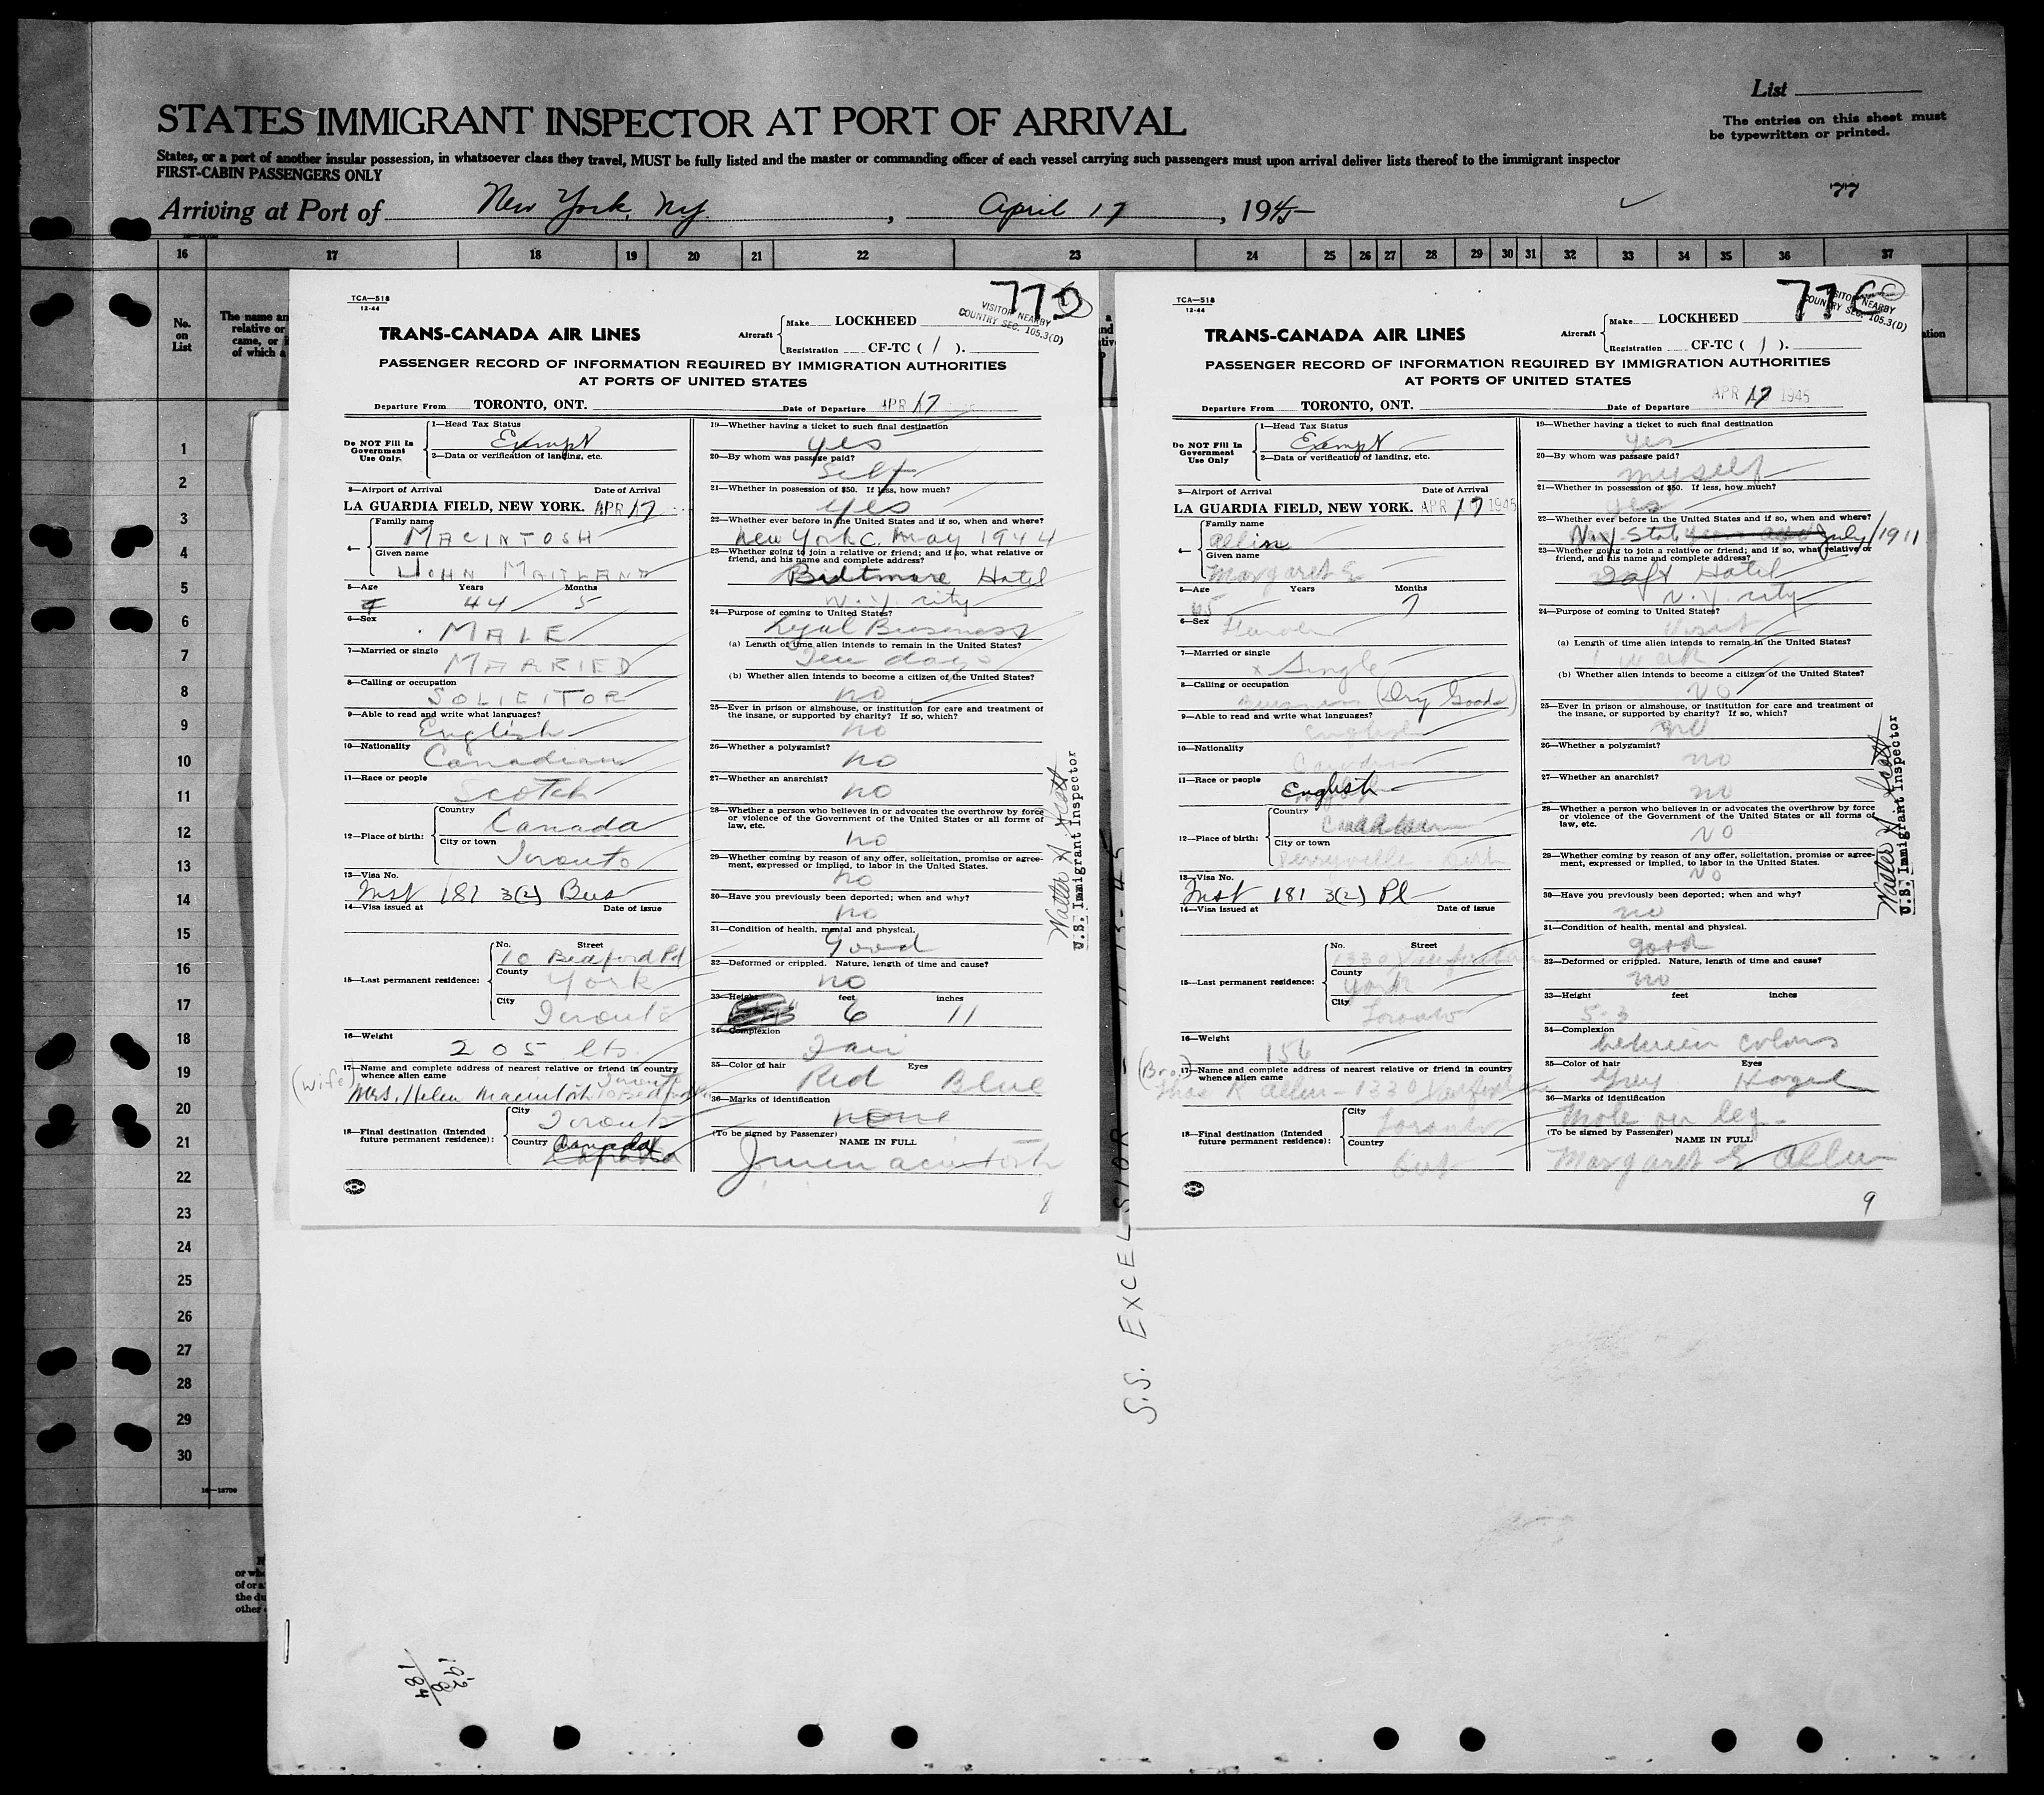 List
STATES IMMIGRANT INSPECTOR AT PORT OF ARRIVAL
The entries on this sheet must
be typewritten or printed.
States, or a port of another insular possession, in whatsoever class they travel, MUST be fully listed and the master or commanding officer of each vessel carrying such passengers must upon arrival deliver lists thereof to the immigrant inspector
FIRST-CABIN PASSENGERS ONLY
77
Arriving at Port of New York, NY. , April 17 , 1945
16 17 18 19 20 21 22 23 24 25 26 27 28 29 30 31 32 33 34 35 36 37
No.
on
List
The name an
relative or
came, or i
of which a
1
2
3
4
5
6
7
8
9
10
11
12
13
14
15
16
17
18
19
20
21
22
23
24
25
26
27
28
29
30
or whe
of or a
the du
other
TCA—518
12-44
77D
VISITOR NEARBY
COUNTRY SEC. 105.3(D)
TRANS-CANADA AIR LINES
Aircraft
Make LOCKHEED
Registration CF-TC ( 1 ).
PASSENGER RECORD OF INFORMATION REQUIRED BY IMMIGRATION AUTHORITIES
AT PORTS OF UNITED STATES
Departure From TORONTO, ONT.
Date of Departure APR 17
Do NOT Fill In
Government
Use Only.
1—Head Tax Status
Exempt
2—Data or verification of landing, etc.
3—Airport of Arrival Date of Arrival
LA GUARDIA FIELD, NEW YORK. APR 17
4—
Family name
MACINTOSH
Given name
JOHN MAITLAND
5—Age Years Months
44 5
6—Sex
MALE
7—Married or single
MARRIED
8—Calling or occupation
SOLICITOR
9—Able to read and write what languages?
English
10—Nationality
Canadian
11—Race or people
Scotch
12—Place of birth:
Country
Canada
City or town
Toronto
13—Visa No.
Inst 181 3(2) Bus
14—Visa issued at Date of issue
15—Last permanent residence:
No. Street
10 Bedford Rd
County
York
City
Toronto
16—Weight
205 lbs.
17—Name and complete address of nearest relative or friend in country
whence alien came
(Wife)
Mrs. Helen Macintosh 10 Bedford Rd
Toronto
18—Final destination (Intended
future permanent residence):
City
Toronto
Country
Canada
19—Whether having a ticket to such final destination
yes
20—By whom was passage paid?
Self
21—Whether in possession of $50. If less, how much?
yes
22—Whether ever before in the United States and if so, when and where?
New York C. May 1944
23—Whether going to join a relative or friend; and if so, what relative or
friend, and his name and complete address?
Biltmore Hotel
N.Y. city
24—Purpose of coming to United States?
Legal Business
(a) Length of time alien intends to remain in the United States?
Ten days
(b) Whether alien intends to become a citizen of the United States?
no
25—Ever in prison or almshouse, or institution for care and treatment of
the insane, or supported by charity? If so, which?
no
26—Whether a polygamist?
no
27—Whether an anarchist?
no
28—Whether a person who believes in or advocates the overthrow by force
or violence of the Government of the United States or all forms of
law, etc.
no
29—Whether coming by reason of any offer, solicitation, promise or agree-
ment, expressed or implied, to labor in the United States.
no
30—Have you previously been deported; when and why?
no
31—Condition of health, mental and physical.
Good
32—Deformed or crippled. Nature, length of time and cause?
no
33—Height feet inches
6 11
34—Complexion
Fair
35—Color of hair Eyes
Red Blue
36—Marks of identification
none
(To be signed by Passenger) NAME IN FULL
8
Walter A. Scott
U.S. Immigrant Inspector
TCA—518
12-44
77C
VISITOR NEARBY
COUNTRY SEC. 105.3(D)
TRANS-CANADA AIR LINES
Aircraft
Make LOCKHEED
Registration CF-TC ( 1 ).
PASSENGER RECORD OF INFORMATION REQUIRED BY IMMIGRATION AUTHORITIES
AT PORTS OF UNITED STATES
Departure From TORONTO, ONT.
Date of Departure APR 17 1945
Do NOT Fill In
Government
Use Only.
1—Head Tax Status
Exempt
2—Data or verification of landing, etc.
3—Airport of Arrival Date of Arrival
LA GUARDIA FIELD, NEW YORK. APR 17 1945
4—
Family name
Given name
Margaret E
5—Age Years Months
65 7
6—Sex
7—Married or single
x Single
8—Calling or occupation
(Dry Goods)
9—Able to read and write what languages?
English
10—Nationality
11—Race or people
English
12—Place of birth:
Country
City or town
13—Visa No.
Inst 181 3(2) Pl
14—Visa issued at Date of issue
15—Last permanent residence:
No. Street
1330
County
York
City
Toronto
16—Weight
156
17—Name and complete address of nearest relative or friend in country
whence alien came
(Bro.)
Thos K Allen - 1330
18—Final destination (Intended
future permanent residence):
City
Toronto
Country
Ont
19—Whether having a ticket to such final destination
yes
20—By whom was passage paid?
myself
21—Whether in possession of $50. If less, how much?
yes
22—Whether ever before in the United States and if so, when and where?
N.Y State July/1911
23—Whether going to join a relative or friend; and if so, what relative or
friend, and his name and complete address?
Taft Hotel
N.Y. city
24—Purpose of coming to United States?
Visit
(a) Length of time alien intends to remain in the United States?
1 week
(b) Whether alien intends to become a citizen of the United States?
NO
25—Ever in prison or almshouse, or institution for care and treatment of
the insane, or supported by charity? If so, which?
26—Whether a polygamist?
no
27—Whether an anarchist?
no
28—Whether a person who believes in or advocates the overthrow by force
or violence of the Government of the United States or all forms of
law, etc.
NO
29—Whether coming by reason of any offer, solicitation, promise or agree-
ment, expressed or implied, to labor in the United States.
NO
30—Have you previously been deported; when and why?
no
31—Condition of health, mental and physical.
good
32—Deformed or crippled. Nature, length of time and cause?
no
33—Height feet inches
5-3
34—Complexion
between colors
35—Color of hair Eyes
Grey Hazel
36—Marks of identification
Mole on leg.
(To be signed by Passenger) NAME IN FULL
Margaret E Allen
9
Walter A. Scott
U.S. Immigrant Inspector
S.S. EXCELSIOR